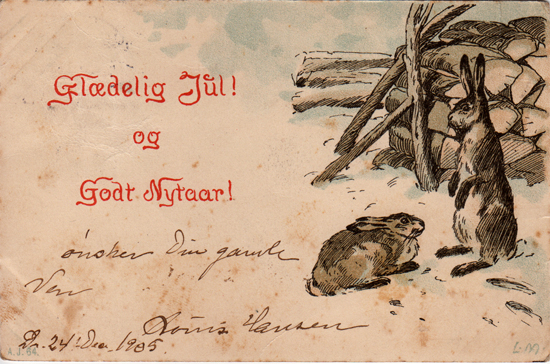 Glædelig Jul!
og
Godt Nytaar!
ønsker Din gamle
Ven
Hansen
24' Dec. 1905
A.J. 64.